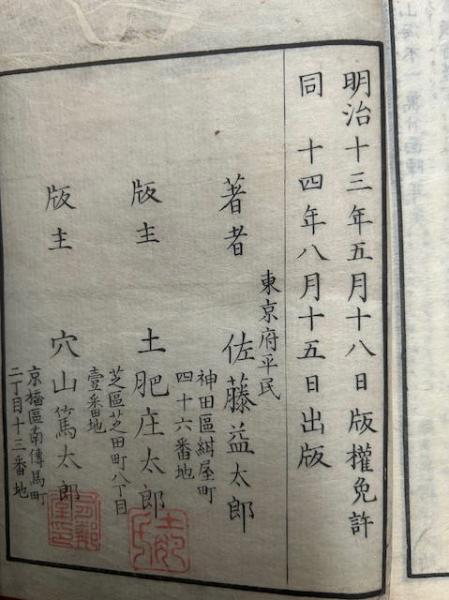 明治十三年五月十八日版權免許
同 十四年八月十五日出版
東京府平民
著者 佐藤益太郎
神田區紺屋町
四十六番地
版主 土肥庄太郎
芝區芝田町八丁目
壹番地
版主 穴山篤太郎
京橋區南傳馬町
二丁目十三番地